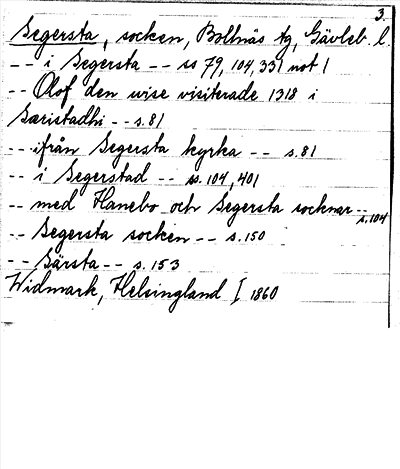 3.
Segersta, socken, Bollnäs tg, Gävleb. l.
-- i Segersta -- ss 79, 104, 331 not 1
-- Olof den wise visiterade 1318 i
Særistadhi -- s. 81
-- ifrån Segersta kyrka -- s. 81
-- i Segerstad -- ss. 104, 401
-- med Hanebo och Segersta socknar -- s. 104
-- Segersta socken -- s. 150
-- Särsta -- s. 153
Widmark, Helsingland I 1860